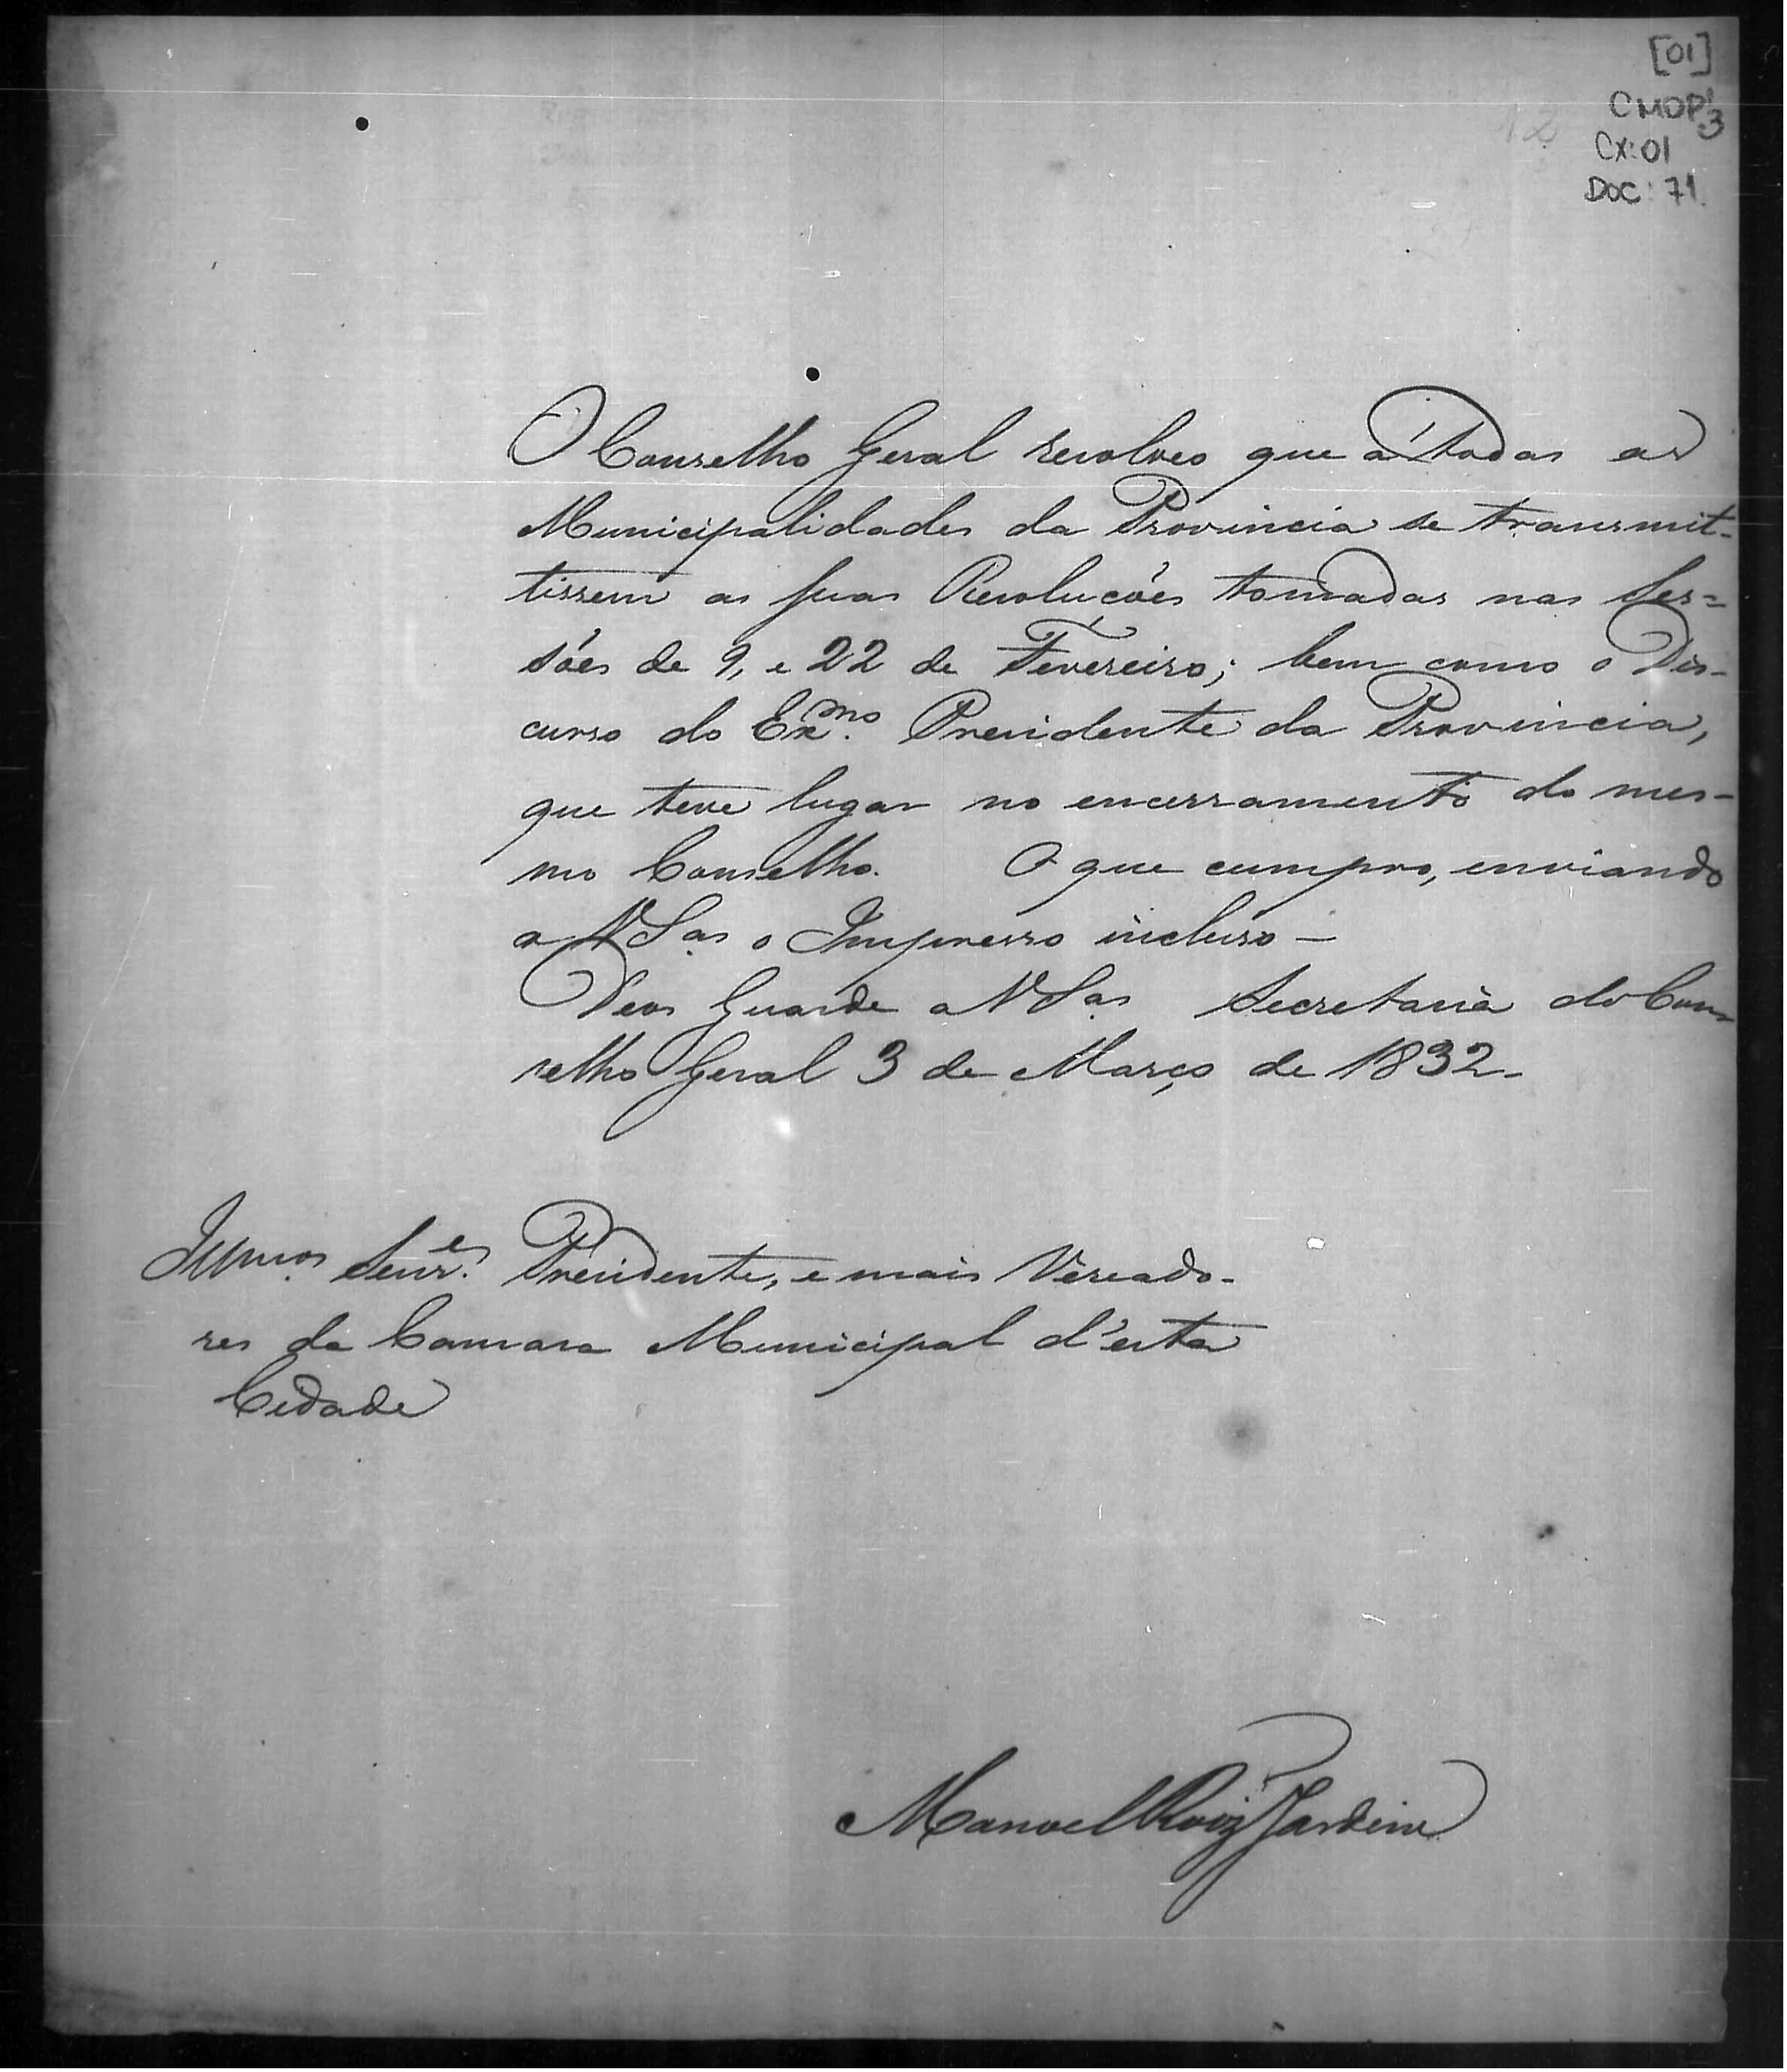 [01]
CMOP
3
CX: 01
DOC: 71.
O Conselho Geral resolveo que á todas as
Municipalidades da Provincia se transmit-
tissem as suas Resoluções tomadas nas Ses=
sões de 9, e 22 de Fevereiro; bem como o Dis-
curso do Exmo. Presidente da Provincia,
que teve lugar no encerramento do mes-
mo Conselho. O que cumpro, enviando
a VSas. o Impresso incluso —
Deos Guarde a VSas. Secretaria do Con-
selho Geral 3 de Março de 1832-
Illmos. Senres. Presidente, e mais Vereado-
res da Camara Municipal d'esta
Cidade
Manoel Roiz Jardim